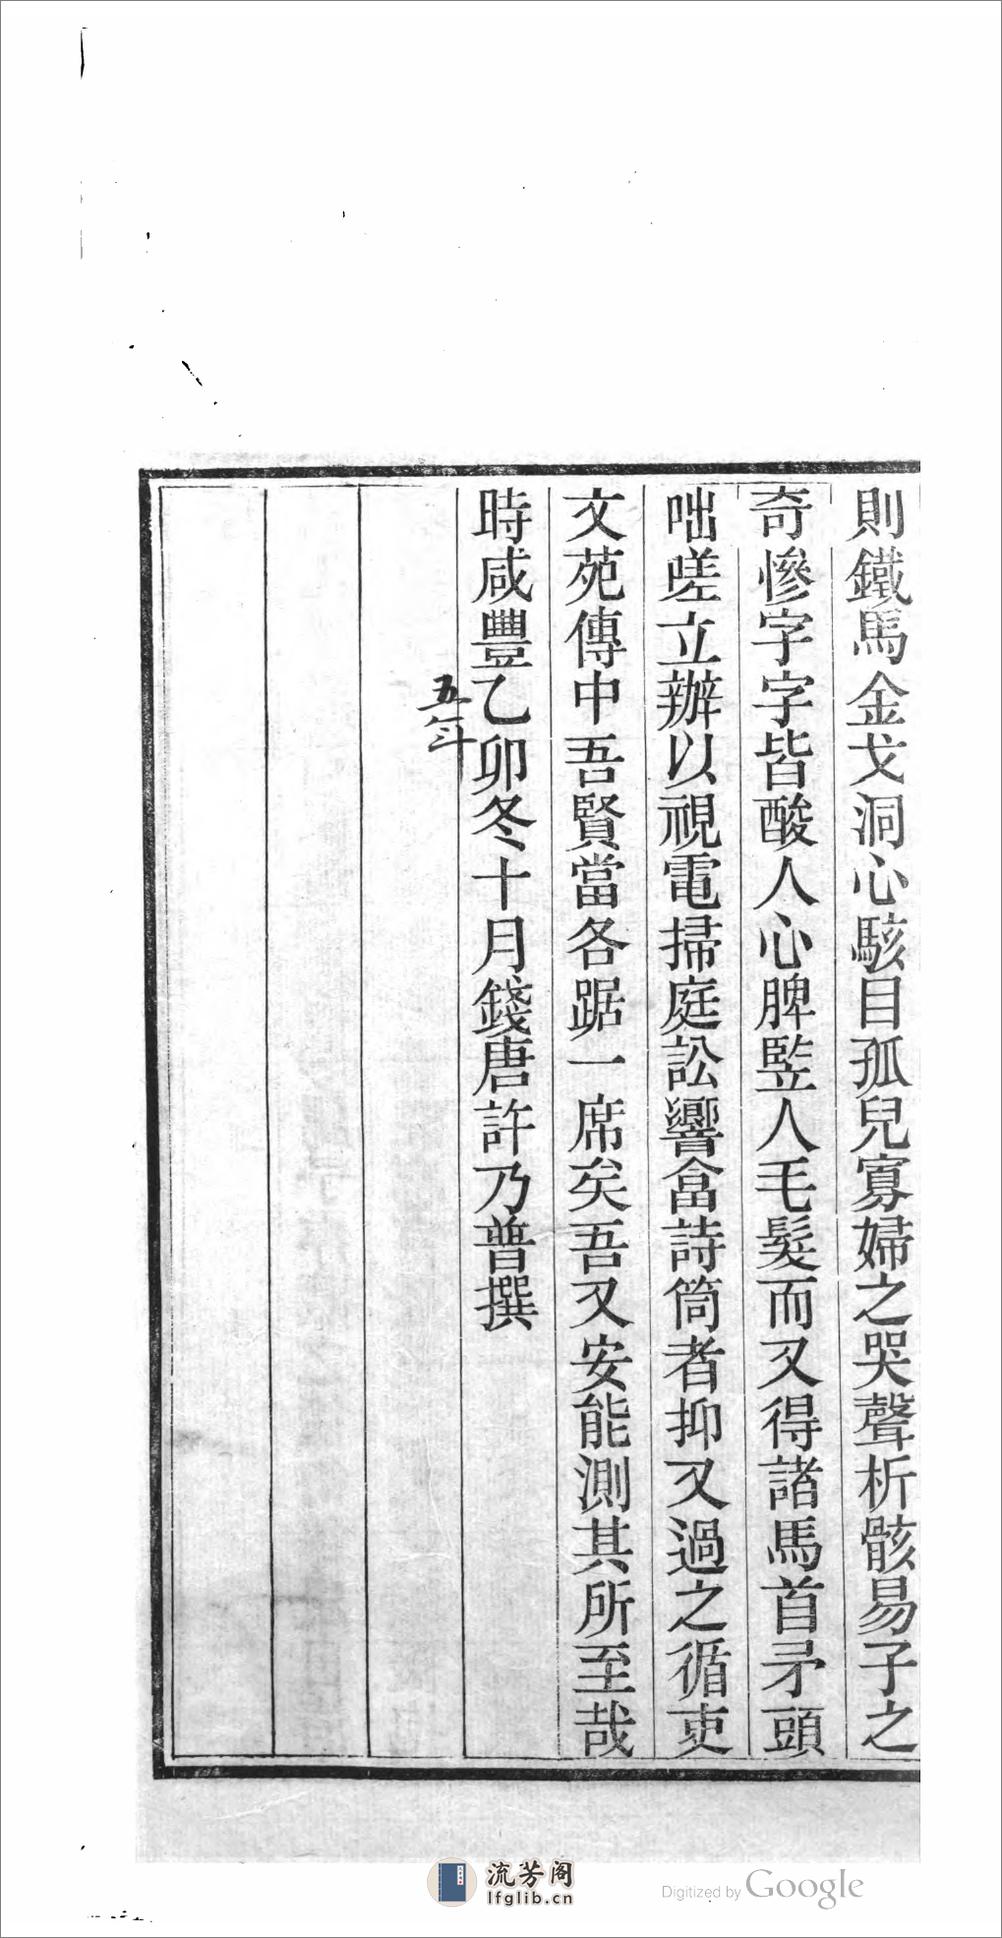 則鐵馬金戈洞心駭目孤兒寡婦之哭聲析骸易子之
奇慘字字皆酸人心脾監人毛髮而又得諸馬首矛頭
咄嗟立辦以視電掃庭訟響畣詩筒者抑又過之循吏
文苑傳中吾賢當各踞一席矣吾又安能測其所至哉
時咸豐乙卯冬十月錢唐許乃普撰
五年
流芳阁
lfglib.cn
Digitized by Google